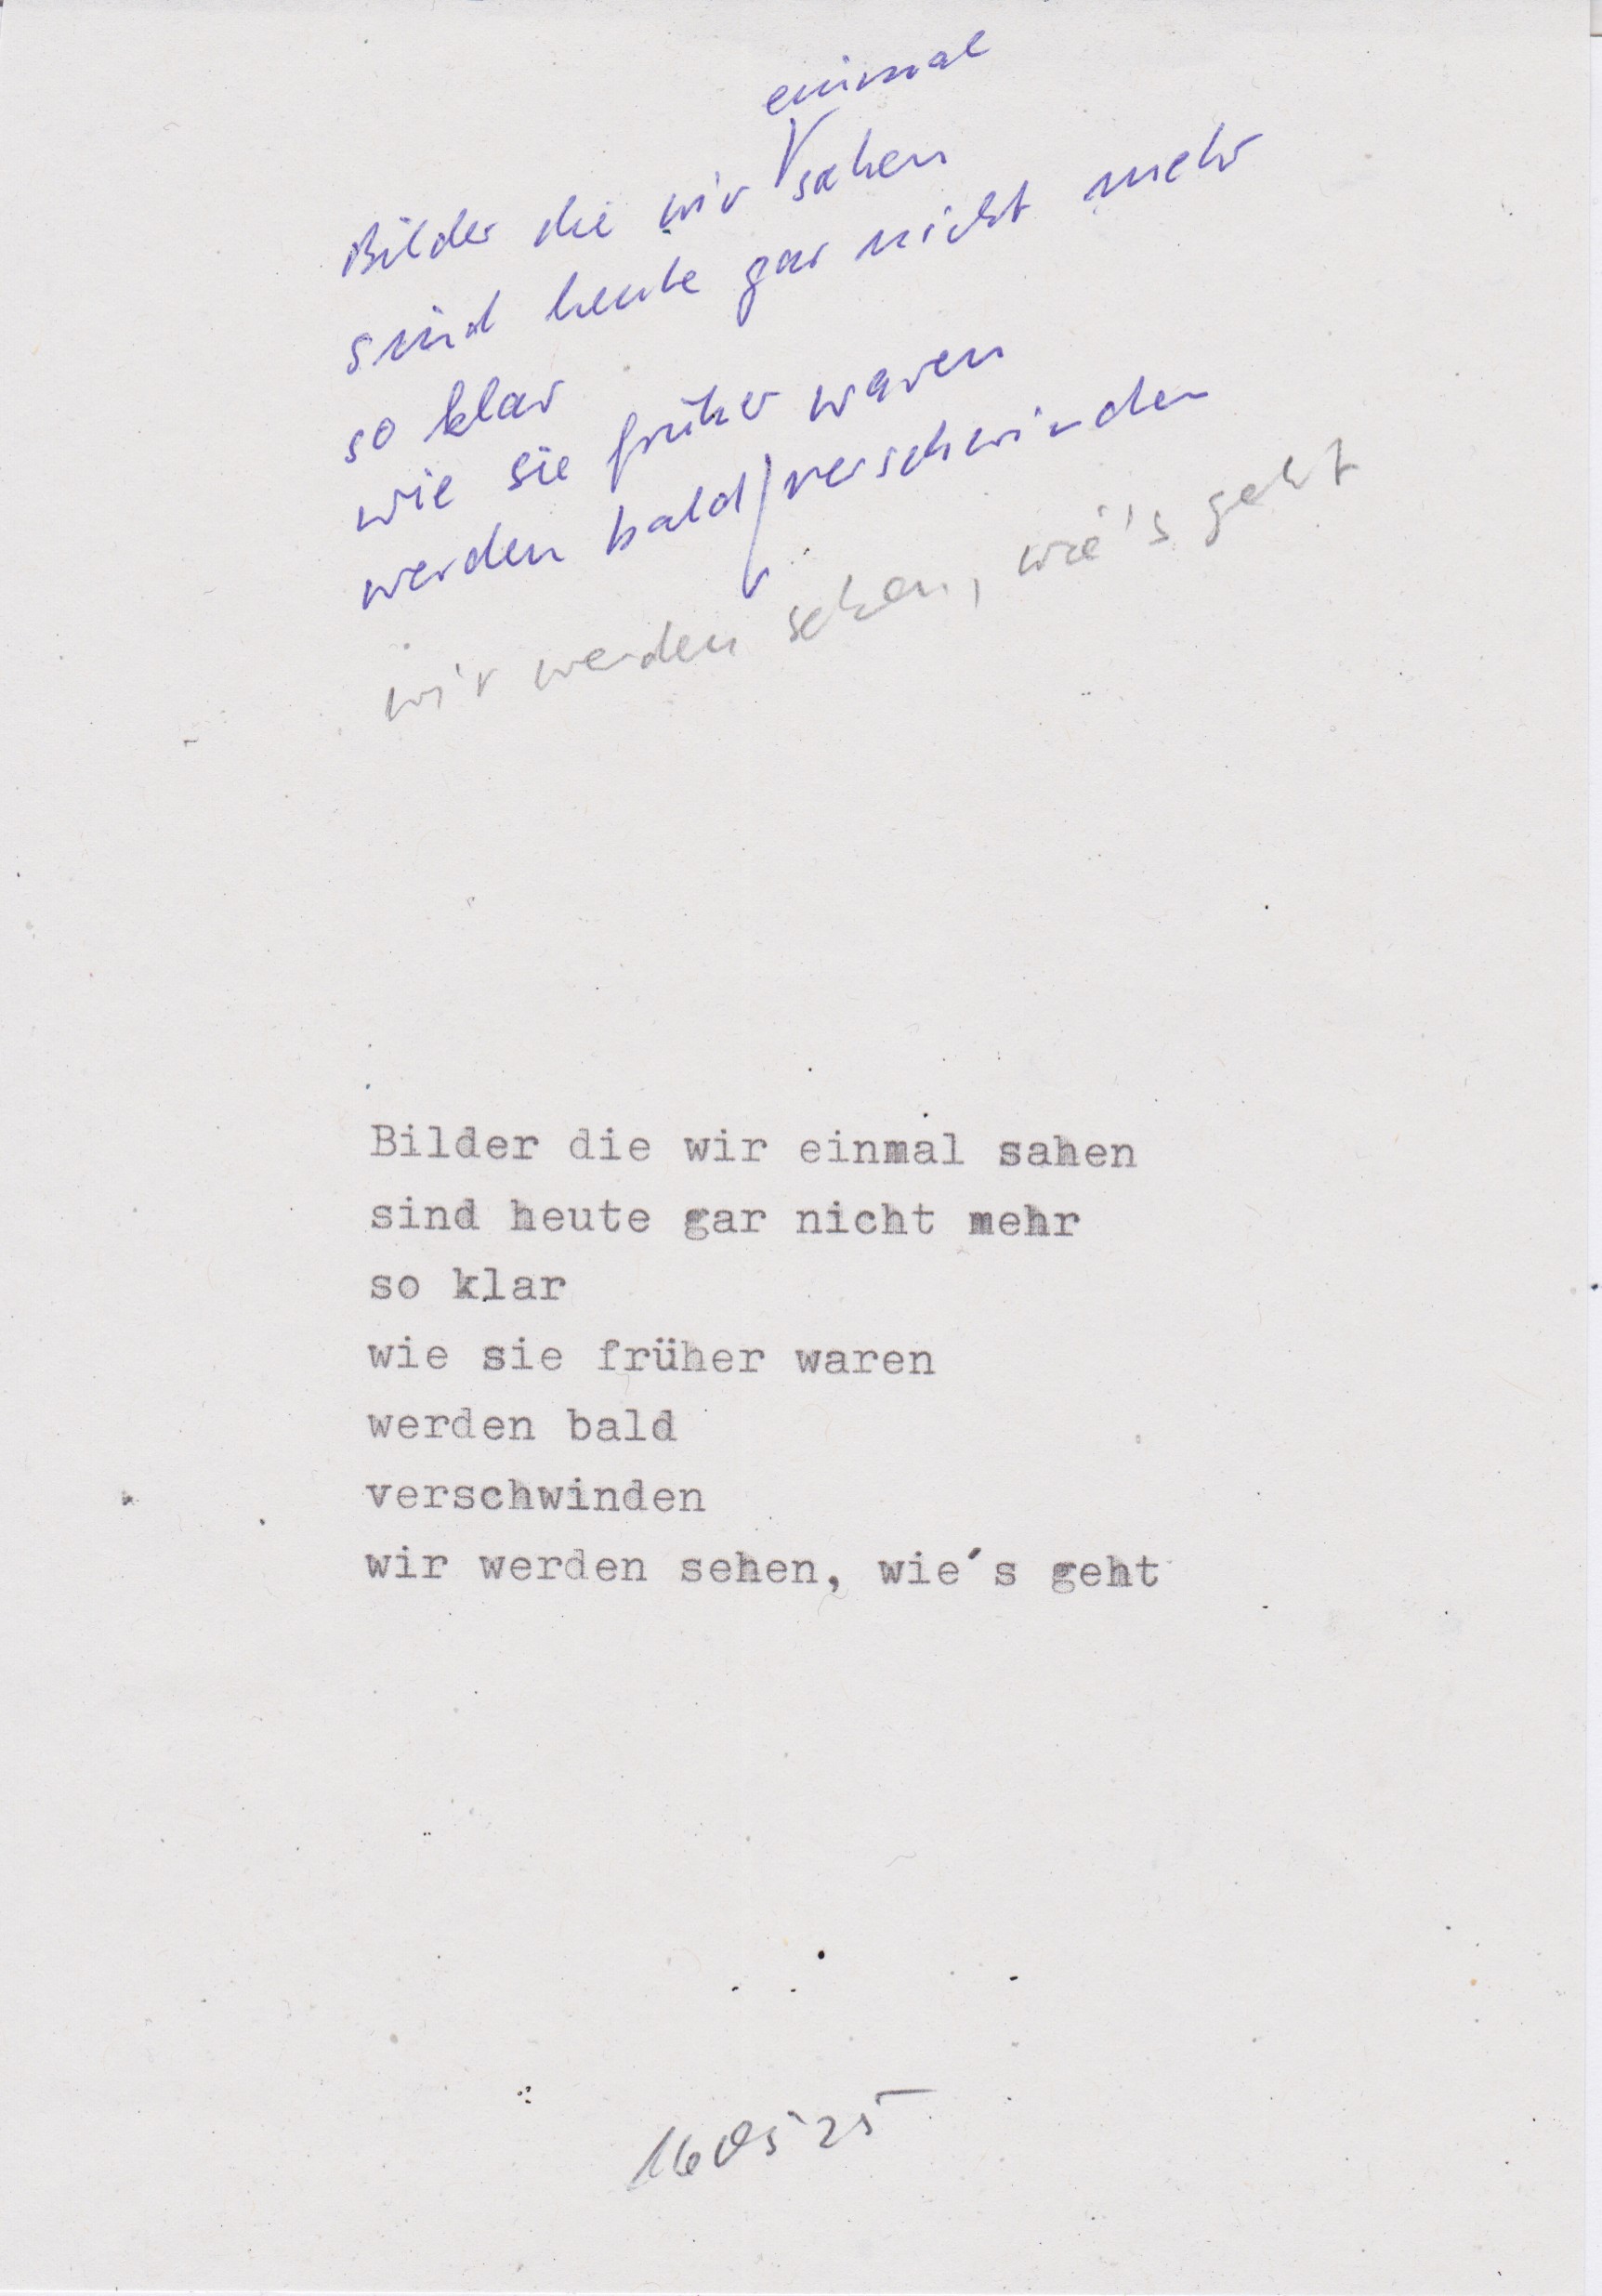 einmal
Bilder die wir sahen
sind heute gar nicht mehr
so klar
wie sie früher waren
werden bald/verschwinden
wir werden sehen, wie's geht
Bilder die wir einmal sahen
sind heute gar nicht mehr
so klar
wie sie früher waren
werden bald
verschwinden
wir werden sehen, wie´s geht
160525